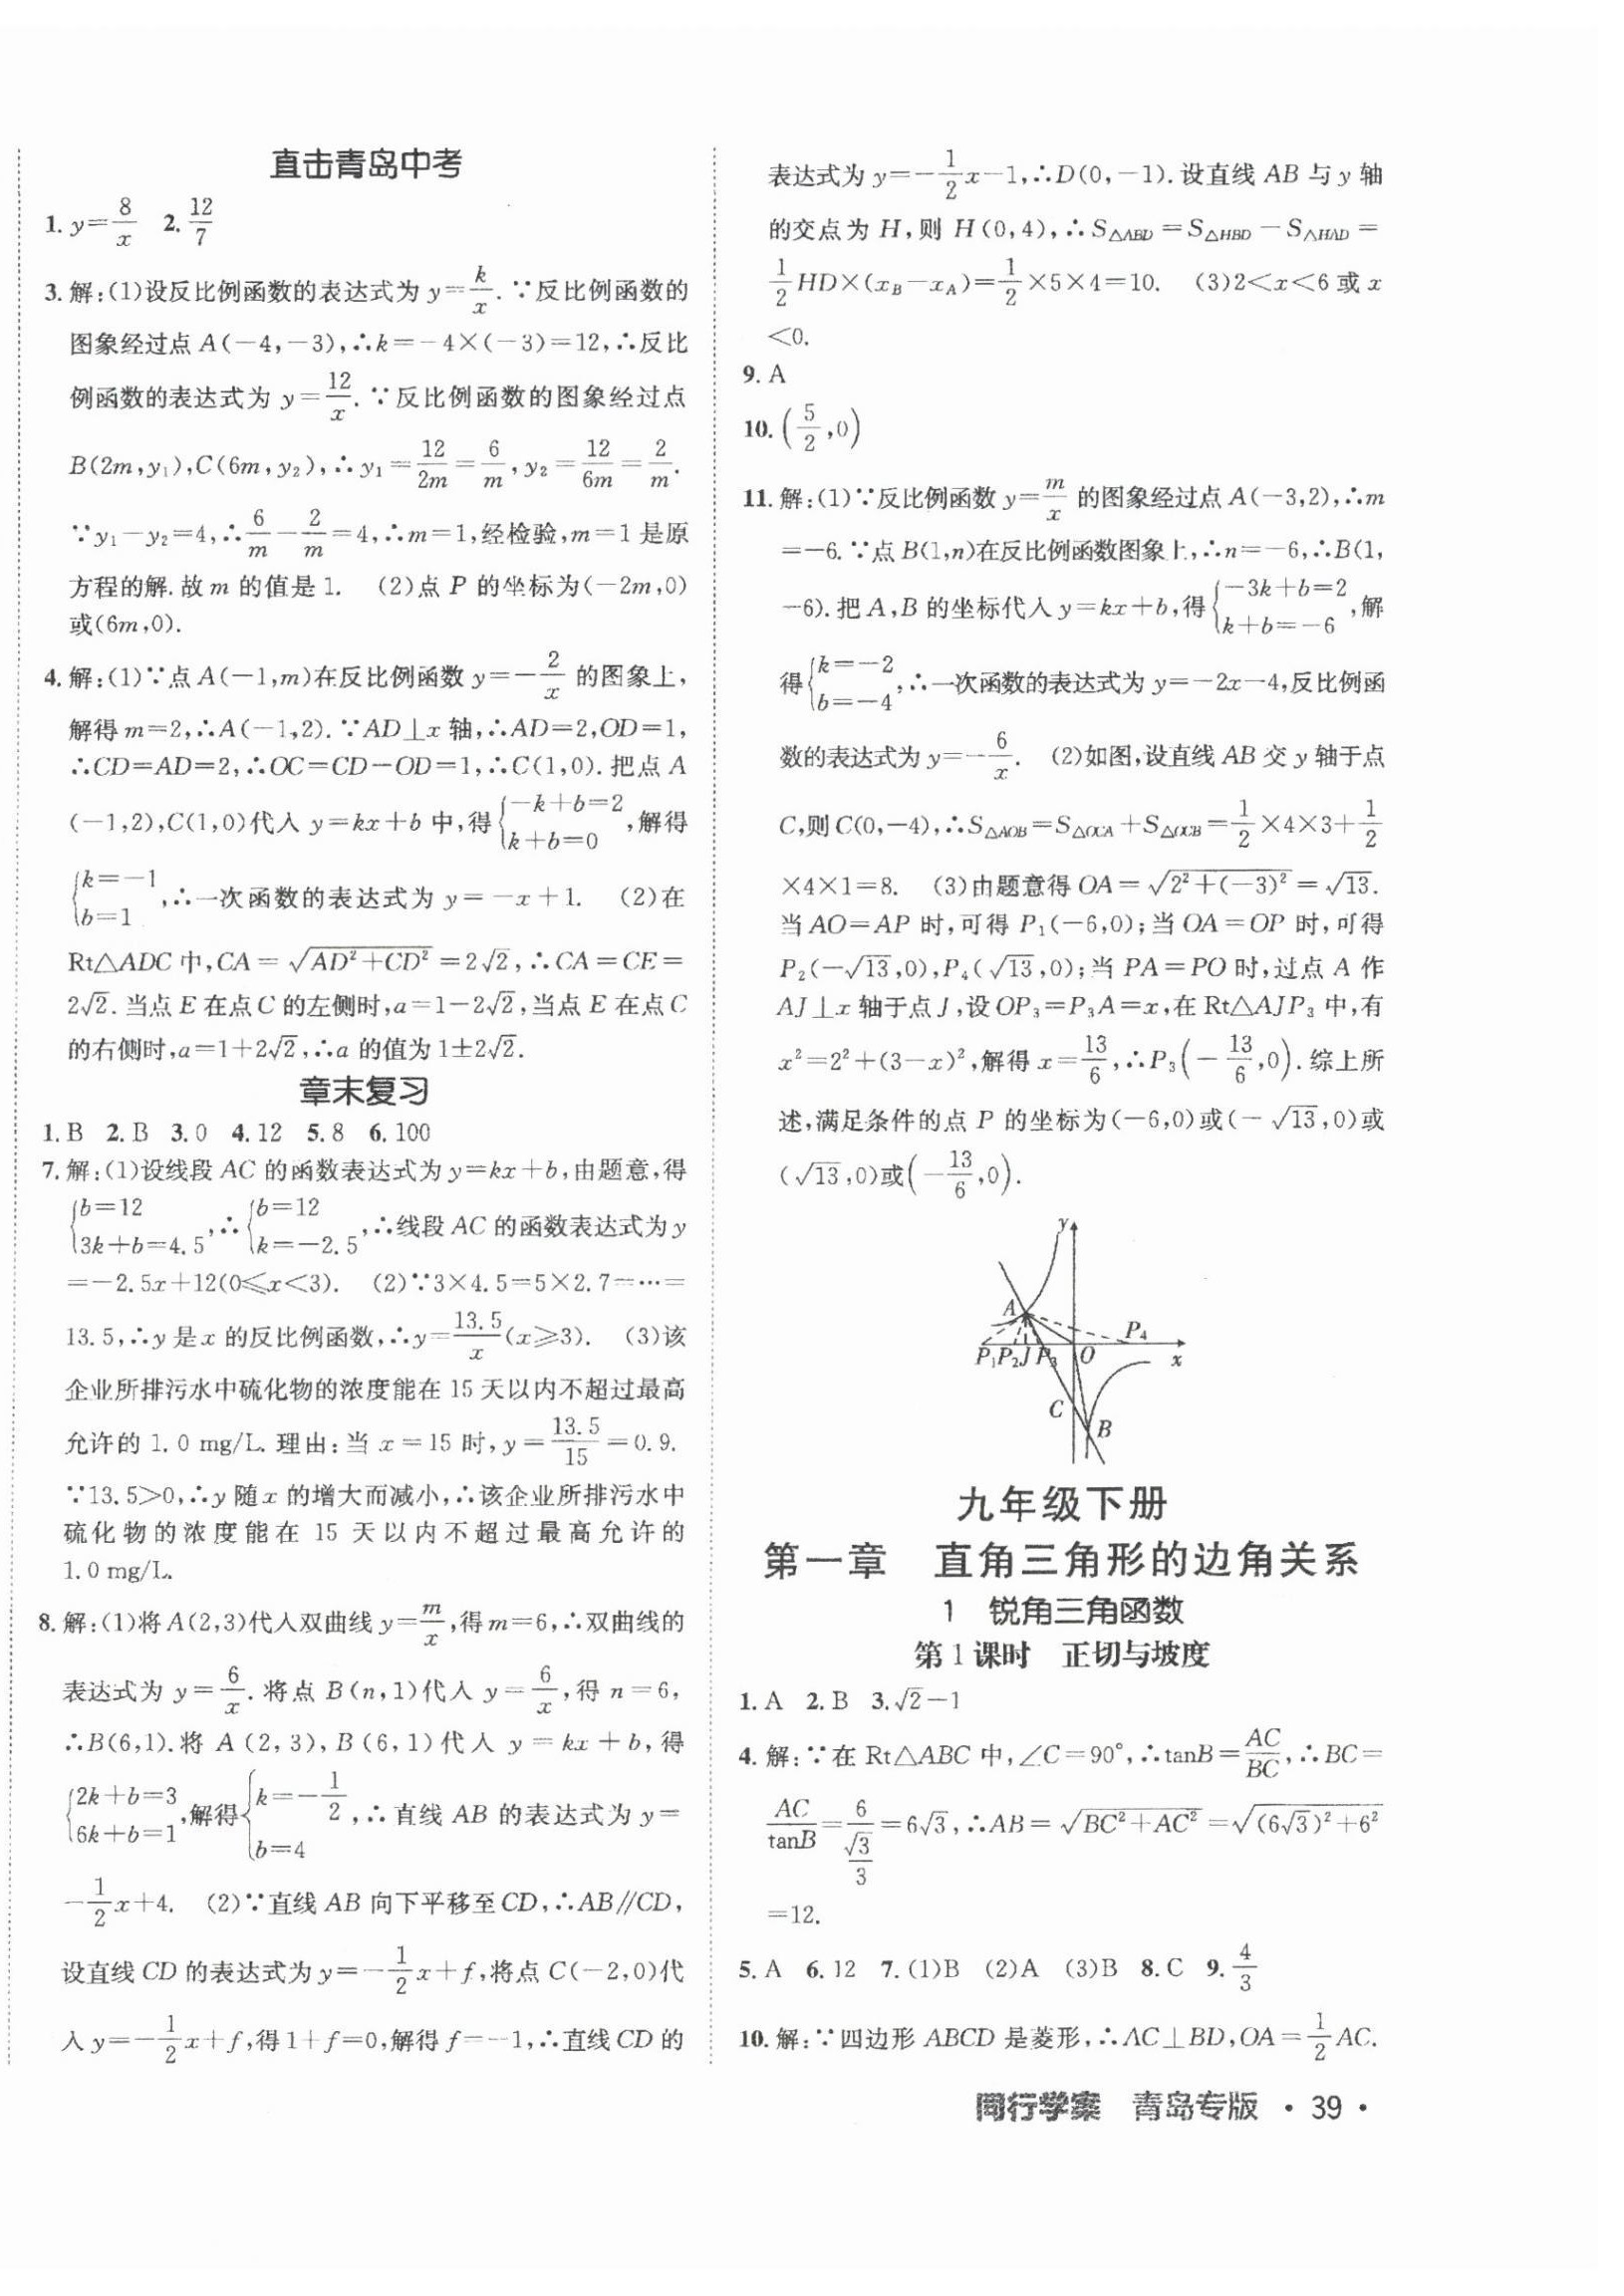 直击青岛中考
1. y=8/x 2. 12/7
3. 解:(1)设反比例函数的表达式为 y=k/x. ∵反比例函数的
图象经过点 A(-4,-3),∴k=-4×(-3)=12,∴反比
例函数的表达式为 y=12/x. ∵反比例函数的图象经过点
B(2m,y₁),C(6m,y₂),∴y₁=12/2m=6/m,y₂=12/6m=2/m.
∵y₁-y₂=4,∴6/m-2/m=4,∴m=1,经检验,m=1 是原
方程的解.故 m 的值是 1. (2)点 P 的坐标为(-2m,0)
或(6m,0).
4. 解:(1)∵点 A(-1,m)在反比例函数 y=-2/x 的图象上,
解得 m=2,∴A(-1,2). ∵AD⊥x 轴,∴AD=2,OD=1,
∴CD=AD=2,∴OC=CD-OD=1,∴C(1,0).把点 A
(-1,2),C(1,0)代入 y=kx+b 中,得{-k+b=2 k+b=0,解得
{k=-1 b=1,∴一次函数的表达式为 y=-x+1. (2)在
Rt△ADC 中,CA=√(AD²+CD²)=2√2,∴CA=CE=
2√2.当点 E 在点 C 的左侧时,a=1-2√2,当点 E 在点 C
的右侧时,a=1+2√2,∴a 的值为 1±2√2.
章末复习
1. B 2. B 3. 0 4. 12 5. 8 6. 100
7. 解:(1)设线段 AC 的函数表达式为 y=kx+b,由题意,得
{b=12 3k+b=4.5,∴{b=12 k=-2.5,∴线段 AC 的函数表达式为 y
=-2.5x+12(0⩽x<3). (2)∵3×4.5=5×2.7=…=
13.5,∴y 是 x 的反比例函数,∴y=13.5/x(x⩾3). (3)该
企业所排污水中硫化物的浓度能在 15 天以内不超过最高
允许的 1.0 mg/L.理由:当 x=15 时,y=13.5/15=0.9.
∵13.5>0,∴y 随 x 的增大而减小,∴该企业所排污水中
硫化物的浓度能在 15 天以内不超过最高允许的
1.0 mg/L.
8. 解:(1)将 A(2,3)代入双曲线 y=m/x,得 m=6,∴双曲线的
表达式为 y=6/x.将点 B(n,1)代入 y=6/x,得 n=6,
∴B(6,1).将 A(2,3),B(6,1)代入 y=kx+b,得
{2k+b=3 6k+b=1,解得{k=-1/2 b=4,∴直线 AB 的表达式为 y=
-1/2x+4. (2)∵直线 AB 向下平移至 CD,∴AB∥CD,
设直线 CD 的表达式为 y=-1/2x+f,将点 C(-2,0)代
入 y=-1/2x+f,得 1+f=0,解得 f=-1,∴直线 CD 的
表达式为 y=-1/2x-1,∴D(0,-1).设直线 AB 与 y 轴
的交点为 H,则 H(0,4),∴S△ABD=S△HBD-S△HAD=
1/2HD×(x_B-x_A)=1/2×5×4=10. (3)2<x<6 或 x
<0.
9. A
10. (5/2,0)
11. 解:(1)∵反比例函数 y=m/x 的图象经过点 A(-3,2),∴m
=-6.∵点 B(1,n)在反比例函数图象上,∴n=-6,∴B(1,
-6).把 A,B 的坐标代入 y=kx+b,得{-3k+b=2 k+b=-6,解
得{k=-2 b=-4,∴一次函数的表达式为 y=-2x-4,反比例函
数的表达式为 y=-6/x. (2)如图,设直线 AB 交 y 轴于点
C,则 C(0,-4),∴S△AOB=S△OCA+S△OCB=1/2×4×3+1/2
×4×1=8. (3)由题意得 OA=√(2²+(-3)²)=√13.
当 AO=AP 时,可得 P₁(-6,0);当 OA=OP 时,可得
P₂(-√13,0),P₄(√13,0);当 PA=PO 时,过点 A 作
AJ⊥x 轴于点 J,设 OP₃=P₃A=x,在 Rt△AJP₃ 中,有
x²=2²+(3-x)²,解得 x=13/6,∴P₃(-13/6,0).综上所
述,满足条件的点 P 的坐标为(-6,0)或(-√13,0)或
(√13,0)或(-13/6,0).
y
A
P₄
P₁ P₂ J P₃ O x
C
B
九年级下册
第一章 直角三角形的边角关系
1 锐角三角函数
第 1 课时 正切与坡度
1. A 2. B 3. √2-1
4. 解:∵在 Rt△ABC 中,∠C=90°,∴tanB=AC/BC,∴BC=
AC/tanB=6/(√3/3)=6√3,∴AB=√(BC²+AC²)=√((6√3)²+6²)
=12.
5. A 6. 12 7. (1)B (2)A (3)B 8. C 9. 4/3
10. 解:∵四边形 ABCD 是菱形,∴AC⊥BD,OA=1/2AC.
同行学案 青岛专版 · 39 ·